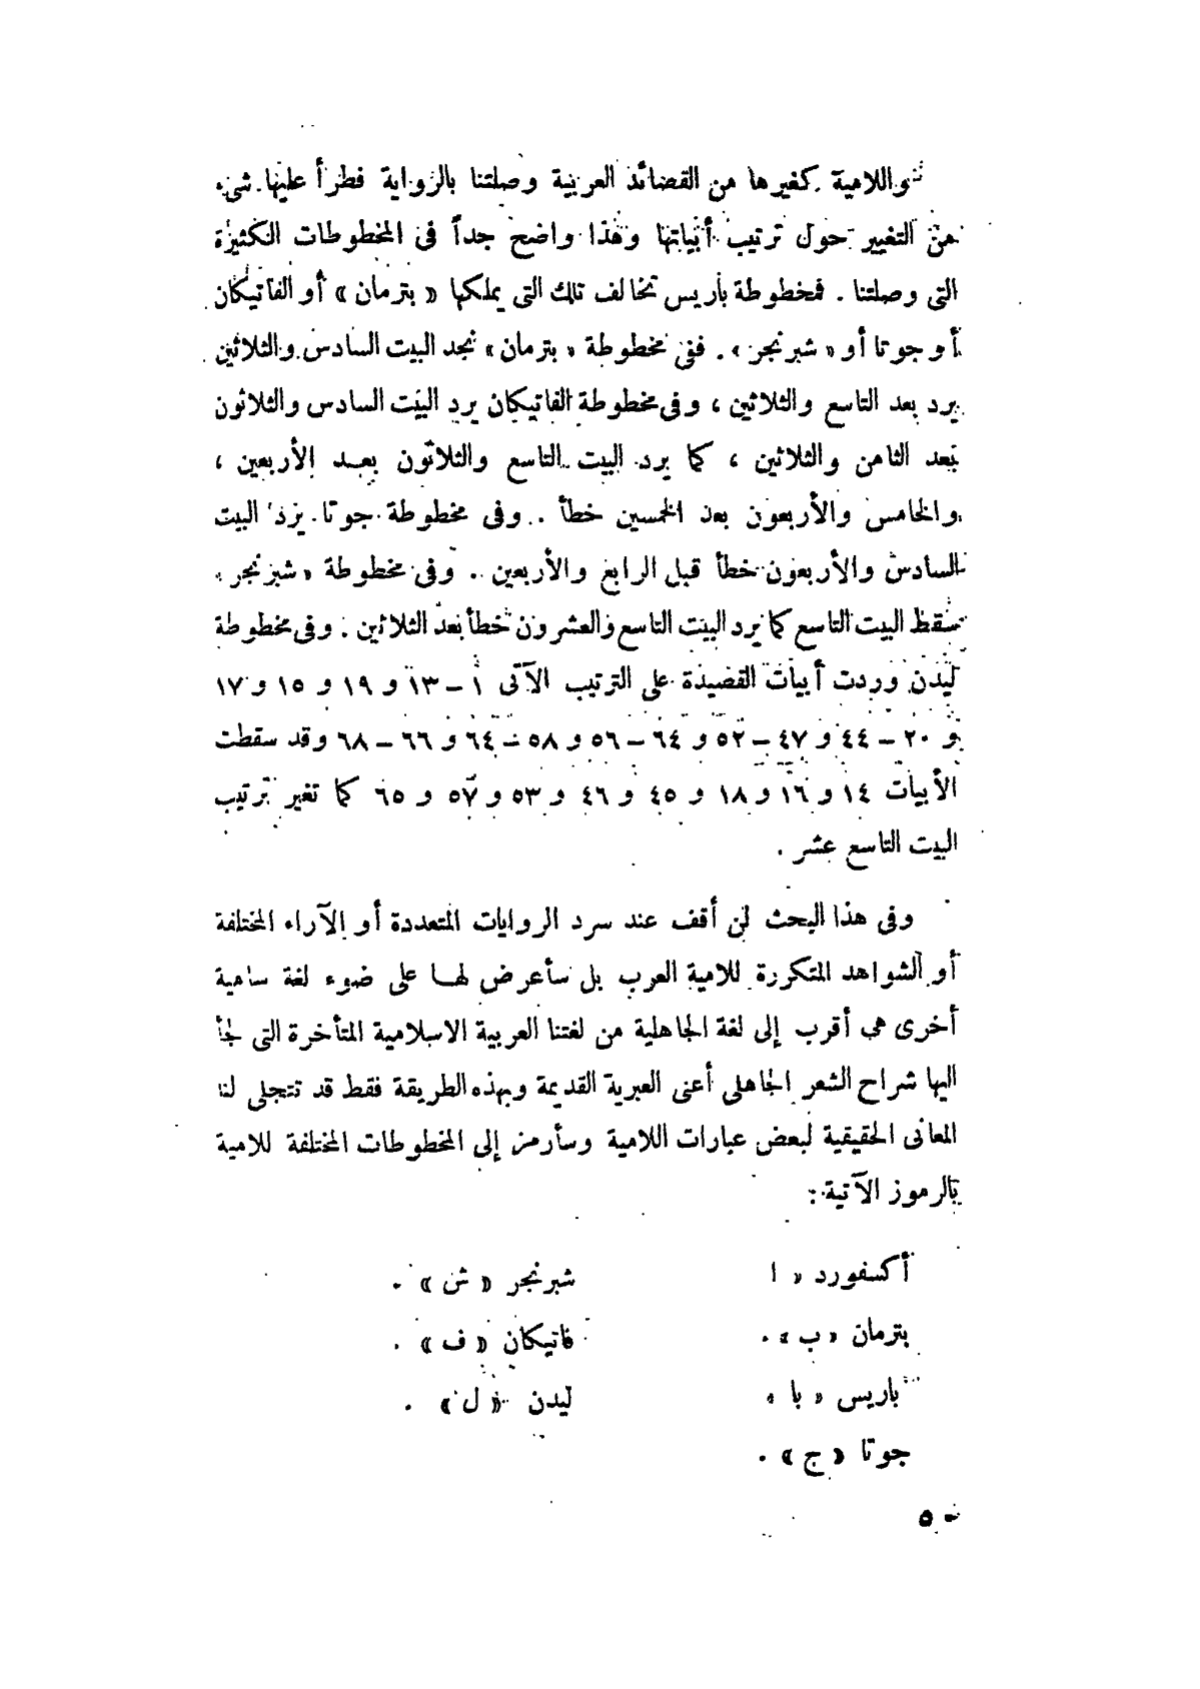 واللامية كغيرها من القصائد العربية وصلتنا بالرواية فطرأ عليها شىء
من التغيير حول ترتيب أبياتها وهذا واضح جداً فى المخطوطات الكثيرة
التى وصلتنا . فمخطوطة باريس تخالف تلك التى يملكها « بترمان » أو الفاتيكان
أو جوتا أو « شبرنجر » . ففى مخطوطة « بترمان » نجد البيت السادس والثلاثين
يرد بعد التاسع والثلاثين ، وفى مخطوطة الفاتيكان يرد البيت السادس والثلاثون
بعد الثامن والثلاثين ، كما يرد البيت التاسع والثلاثون بعد الأربعين ،
والخامس والأربعون بعد الخمسين خطأ . وفى مخطوطة جوتا يرد البيت
السادس والأربعون خطأ قبل الرابع والأربعين . وفى مخطوطة « شبرنجر »
سقط البيت التاسع كما يرد البيت التاسع والعشرون خطأ بعد الثلاثين . وفى مخطوطة
ليدن وردت أبيات القصيدة على الترتيب الآتى ١ – ١٣ و ١٩ و ١٥ و ١٧
و ٢٠ – ٤٤ و ٤٧ – ٥٢ و ٦٤ – ٥٦ و ٥٨ – ٦٤ و ٦٦ – ٦٨ وقد سقطت
الأبيات ١٤ و ١٦ و ١٨ و ٤٥ و ٤٦ و ٥٣ و ٥٧ و ٦٥ كما تغير ترتيب
البيت التاسع عشر .
وفى هذا البحث لن أقف عند سرد الروايات المتعددة أو الآراء المختلفة
أو الشواهد المتكررة للامية العرب بل سأعرض لهــا على ضوء لغة سامية
أخرى هى أقرب إلى لغة الجاهلية من لغتنا العربية الاسلامية المتأخرة التى لجأ
اليها شراح الشعر الجاهلى أعنى العبرية القديمة وبهذه الطريقة فقط قد تتجلى لنا
المعانى الحقيقية لبعض عبارات اللامية وسأرمز إلى المخطوطات المختلفة للامية
بالرموز الآتية :
أكسفورد « ا شبرنجر « ش » .
بترمان « ب » . فاتيكان « ف » .
باريس « با » ليدن « ل » .
جوتا « ج » .
- ٥